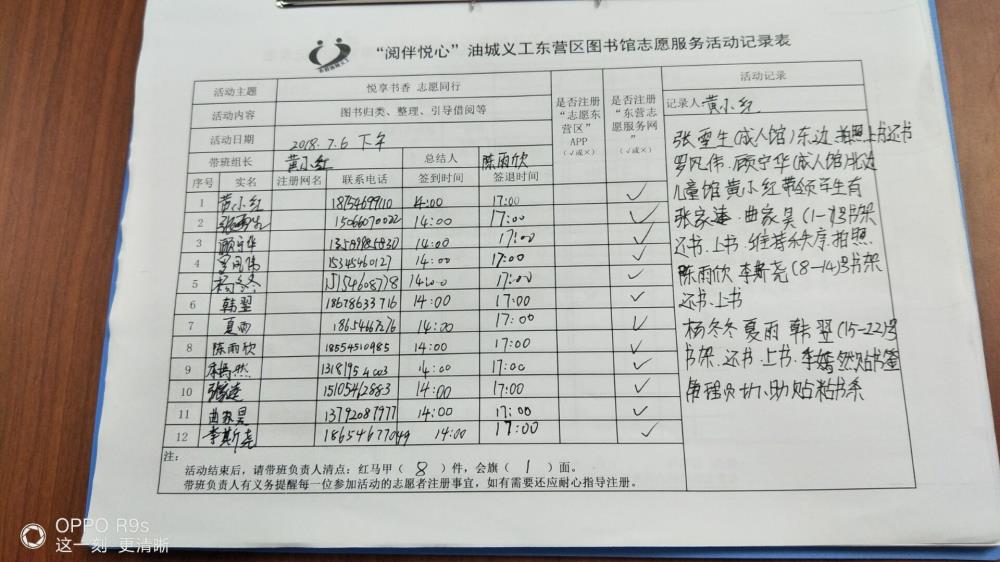 “阅伴悦心”油城义工东营区图书馆志愿服务活动记录表
活动主题 悦享书香 志愿同行
活动内容 图书归类、整理、引导借阅等
活动日期 2018.7.6 下午
带班组长 黄小红 总结人 陈雨欣
是否注册“志愿东营区”APP（√或×）
是否注册“东营志愿服务网”（√或×）
序号 实名 注册网名 联系电话 签到时间 签退时间
1 黄小红 18754699110 14:00 17:00 ✓
2 张雪生 15066070022 14:00 17:00 ✓
3 顾宁华 14:00 17:00 ✓
4 罗凤伟 15345460127 14:00 17:00 ✓
5 杨冬冬 14:00 17:00 ✓
6 韩翌 18678633716 14:00 17:00 ✓
7 夏雨 14:00 17:00 ✓
8 陈雨欣 18554510985 14:00 17:00 ✓
9 李嫣然 14:00 17:00 ✓
10 张家逵 15105462883 14:00 17:00 ✓
11 曲家昊 13792087977 14:00 17:00 ✓
12 李斯尧 18654677049 14:00 17:00 ✓
注：
活动结束后，请带班负责人清点：红马甲（ 8 ）件，会旗（ 1 ）面。
带班负责人有义务提醒每一位参加活动的志愿者注册事宜，如有需要还应耐心指导注册。
活动记录
记录人 黄小红
张雪生(成人馆)东边 拍照上书还书
罗凤伟·顾宁华(成人馆)北边
儿童馆 黄小红带领学生有
张家逵·曲家昊(1-7)号书架
还书.上书·维持秩序.拍照
陈雨欣 李斯尧(8-14)号书架
还书.上书
杨冬冬 夏雨 韩翌(15-22)号
书架.还书.上书.李嫣然贴书签
OPPO R9s
这一刻 更清晰